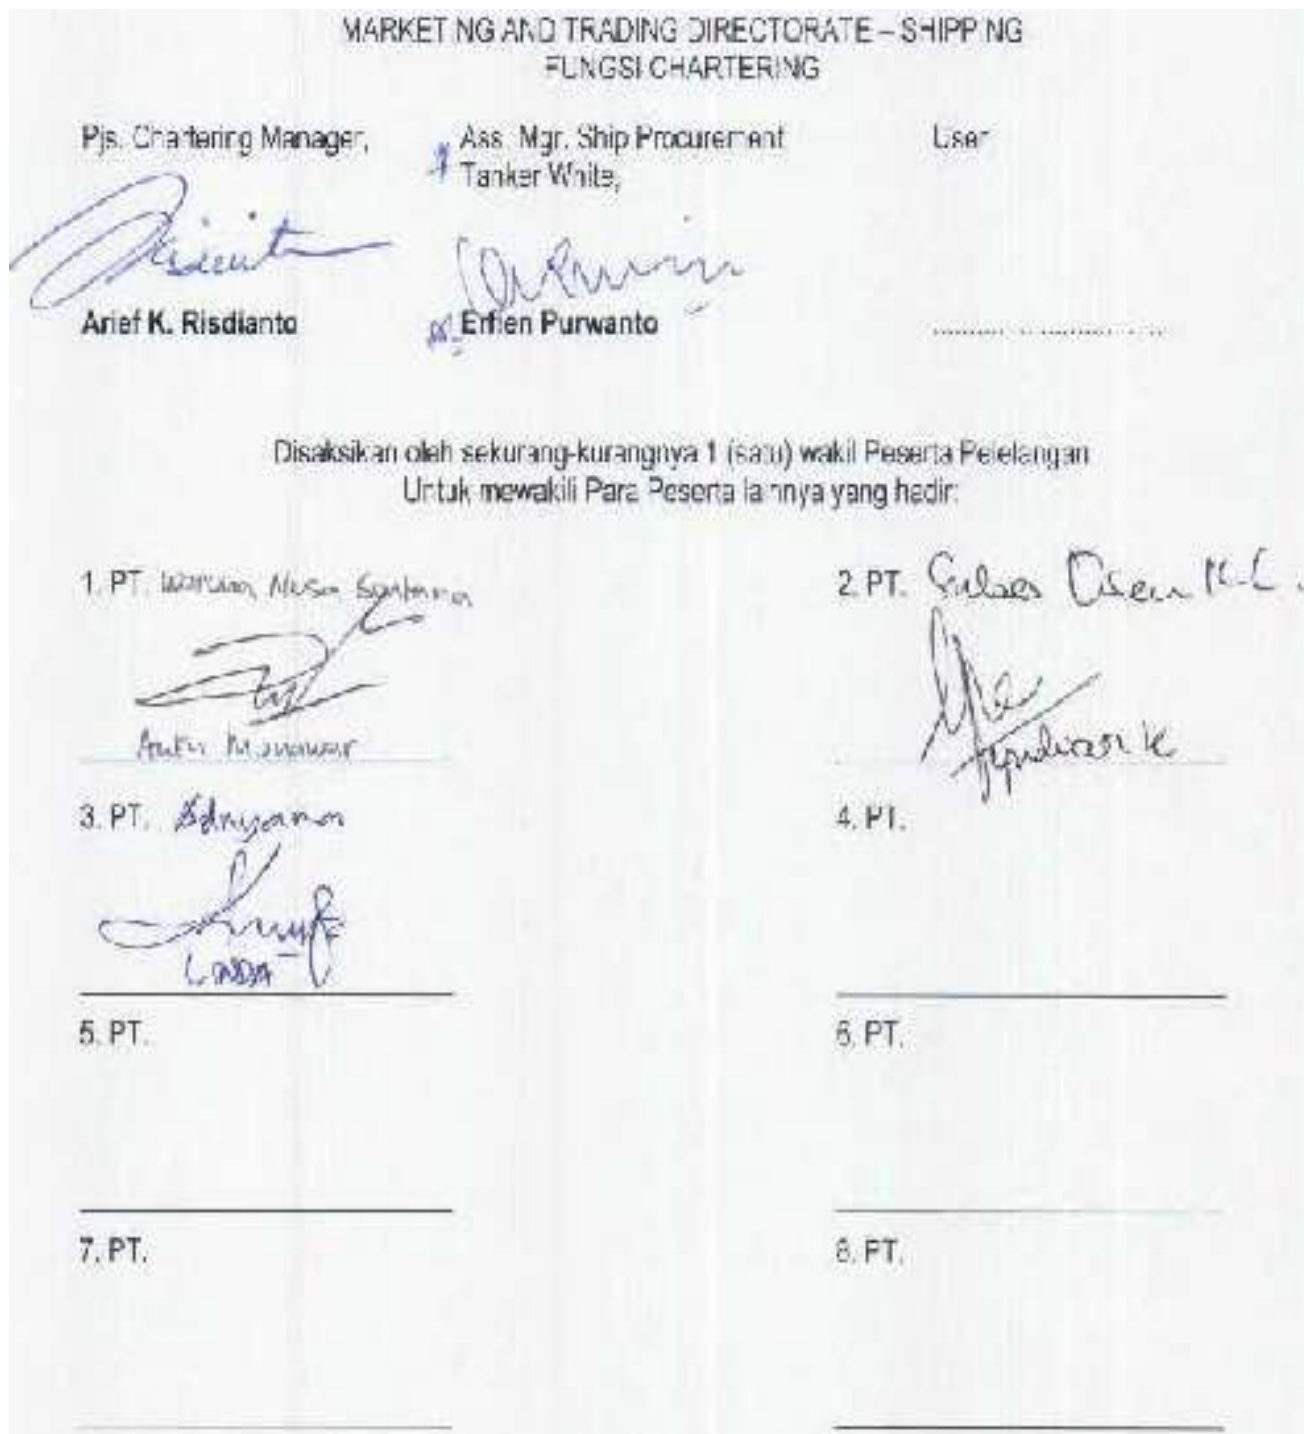 MARKETING AND TRADING DIRECTORATE – SHIPPING
FUNGSI CHARTERING
Pjs. Chartering Manager,
Ass. Mgr. Ship Procurement
Tanker White,
User
Arief K. Risdianto
Erfien Purwanto
Disaksikan oleh sekurang-kurangnya 1 (satu) wakil Peserta Pelelangan
Untuk mewakili Para Peserta lainnya yang hadir:
1. PT. Waruna Nusa Sentana
2. PT. Sukses Osean
Munawar
3. PT. Adnyana
4. PT.
LINDA
5. PT.
6. PT.
7. PT.
8. PT.